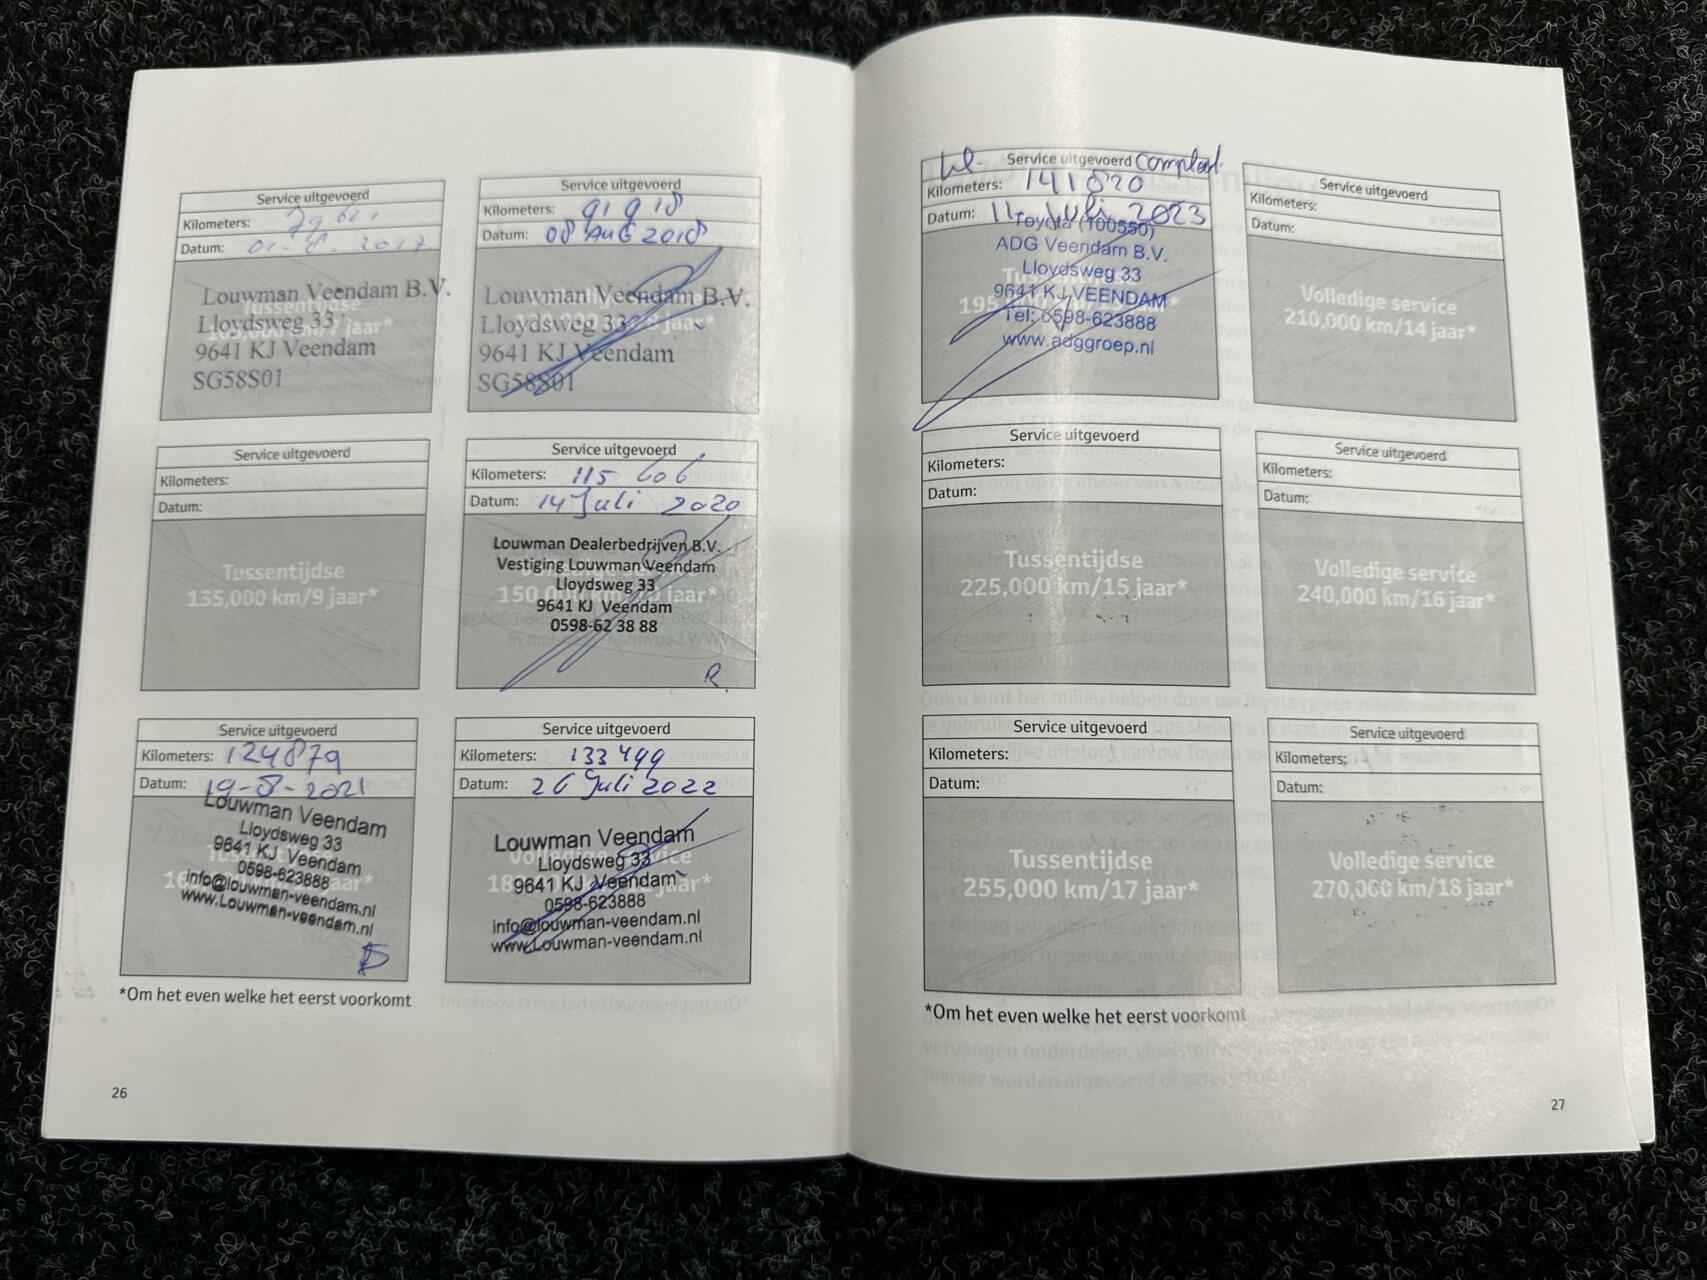 Service uitgevoerd
Kilometers:
Datum: 01-8-2017
Louwman Veendam B.V.
Lloydsweg 33
9641 KJ Veendam
SG58S01
Service uitgevoerd
Kilometers: 91918
Datum: 08 AUG 2018
Louwman Veendam B.V.
Lloydsweg 33
9641 KJ Veendam
SG58S01
Service uitgevoerd
Kilometers:
Datum:
Tussentijdse
135,000 km/9 jaar*
Service uitgevoerd
Kilometers: 115 606
Datum: 14 Juli 2020
Louwman Dealerbedrijven B.V.
Vestiging Louwman Veendam
Lloydsweg 33
9641 KJ Veendam
0598-62 38 88
R.
Service uitgevoerd
Kilometers: 124879
Datum: 19-8-2021
Louwman Veendam
Lloydsweg 33
9641 KJ Veendam
0598-623888
info@louwman-veendam.nl
www.Louwman-veendam.nl
Service uitgevoerd
Kilometers: 133499
Datum: 26 Juli 2022
Louwman Veendam
Lloydsweg 33
9641 KJ Veendam
0598-623888
info@louwman-veendam.nl
www.Louwman-veendam.nl
*Om het even welke het eerst voorkomt
26
Service uitgevoerd
Kilometers: 141820
Datum: 11 Juli 2023
Toyota (100550)
ADG Veendam B.V.
Lloydsweg 33
9641 KJ VEENDAM
Tel: 0598-623888
www.adggroep.nl
Service uitgevoerd
Kilometers:
Datum:
Volledige service
210,000 km/14 jaar*
Service uitgevoerd
Kilometers:
Datum:
Tussentijdse
225,000 km/15 jaar*
Service uitgevoerd
Kilometers:
Datum:
Volledige service
240,000 km/16 jaar*
Service uitgevoerd
Kilometers:
Datum:
Tussentijdse
255,000 km/17 jaar*
Service uitgevoerd
Kilometers:
Datum:
Volledige service
270,000 km/18 jaar*
*Om het even welke het eerst voorkomt
27